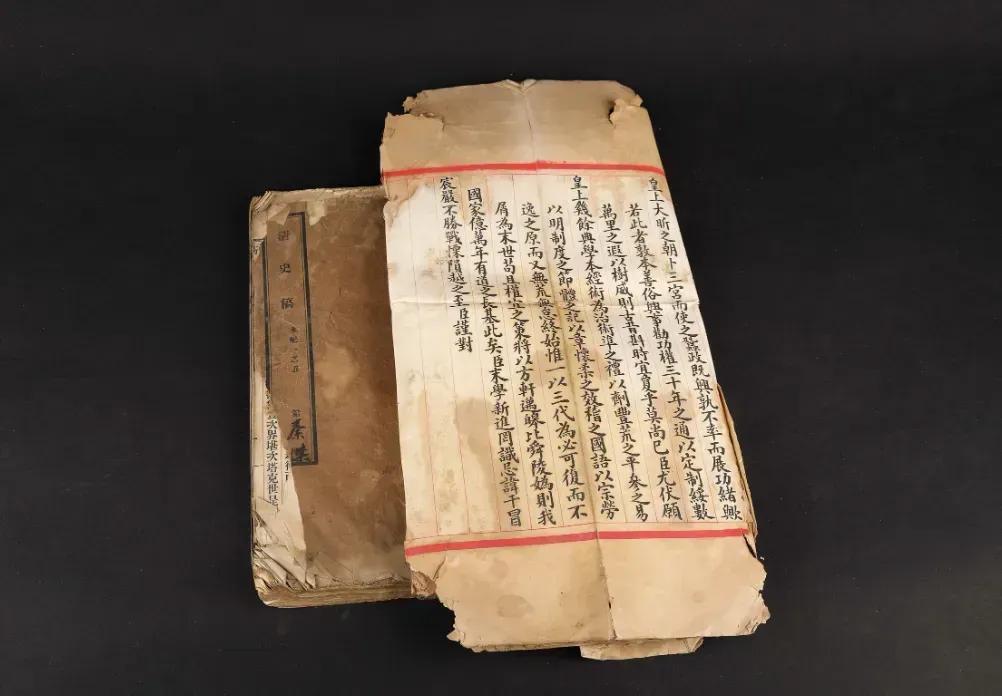 皇上大昕之朝卜三宮而使之蠶政既興孰不率而展功緒歟
若此者敦本善俗興事勸功權三十年之通以定制綏數
萬里之遐以樹威則古昔斟時宜夐乎莫尚已臣尤伏願
皇上幾餘典學本經術為治術準之禮以劑豐荒之平參之易
以明制度之節體之記以章懷柔之效稽之國語以宗勞
逸之原而又無荒無怠終始惟一以三代為必可復而不
屑為末世苟且權宜之策將以方軒邁皞比舜陵媯則我
國家億萬年有道之長基此矣臣末學新進罔識忌諱干冒
宸嚴不勝戰慄隕越之至臣謹對
清史稿
第
次界堪次塔克世是